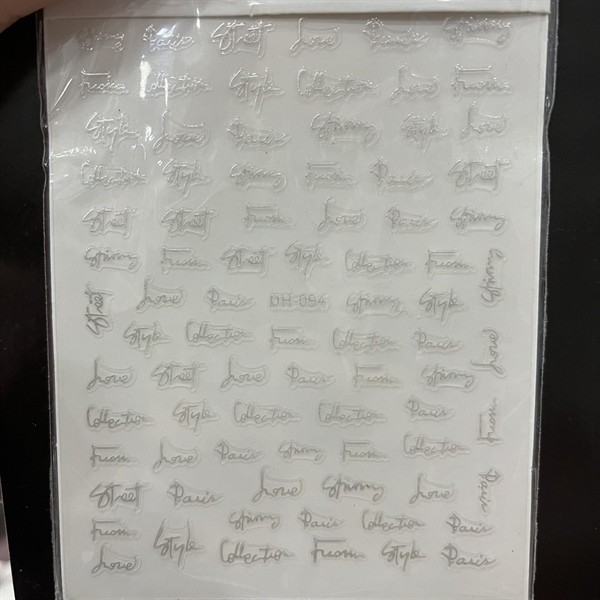 Starry Paris Street Love Paris Starry
From Collection Style Collection Love From
Style Love Paris Starry Style Love
Collection Style Starry From Paris Street
Street Street From Love Paris Starry
Starry From Street Style Collection From Starry
Street Love Paris DH-094 Starry Style
Style Collection From Collection Paris Love
Love Street Love Paris From Starry
Collection Style Collection Collection Paris From
From Love Paris Starry From Collection
Street Paris Love Starry Love Paris
From Starry Paris Collection Paris
Love Style Collection From Style Paris